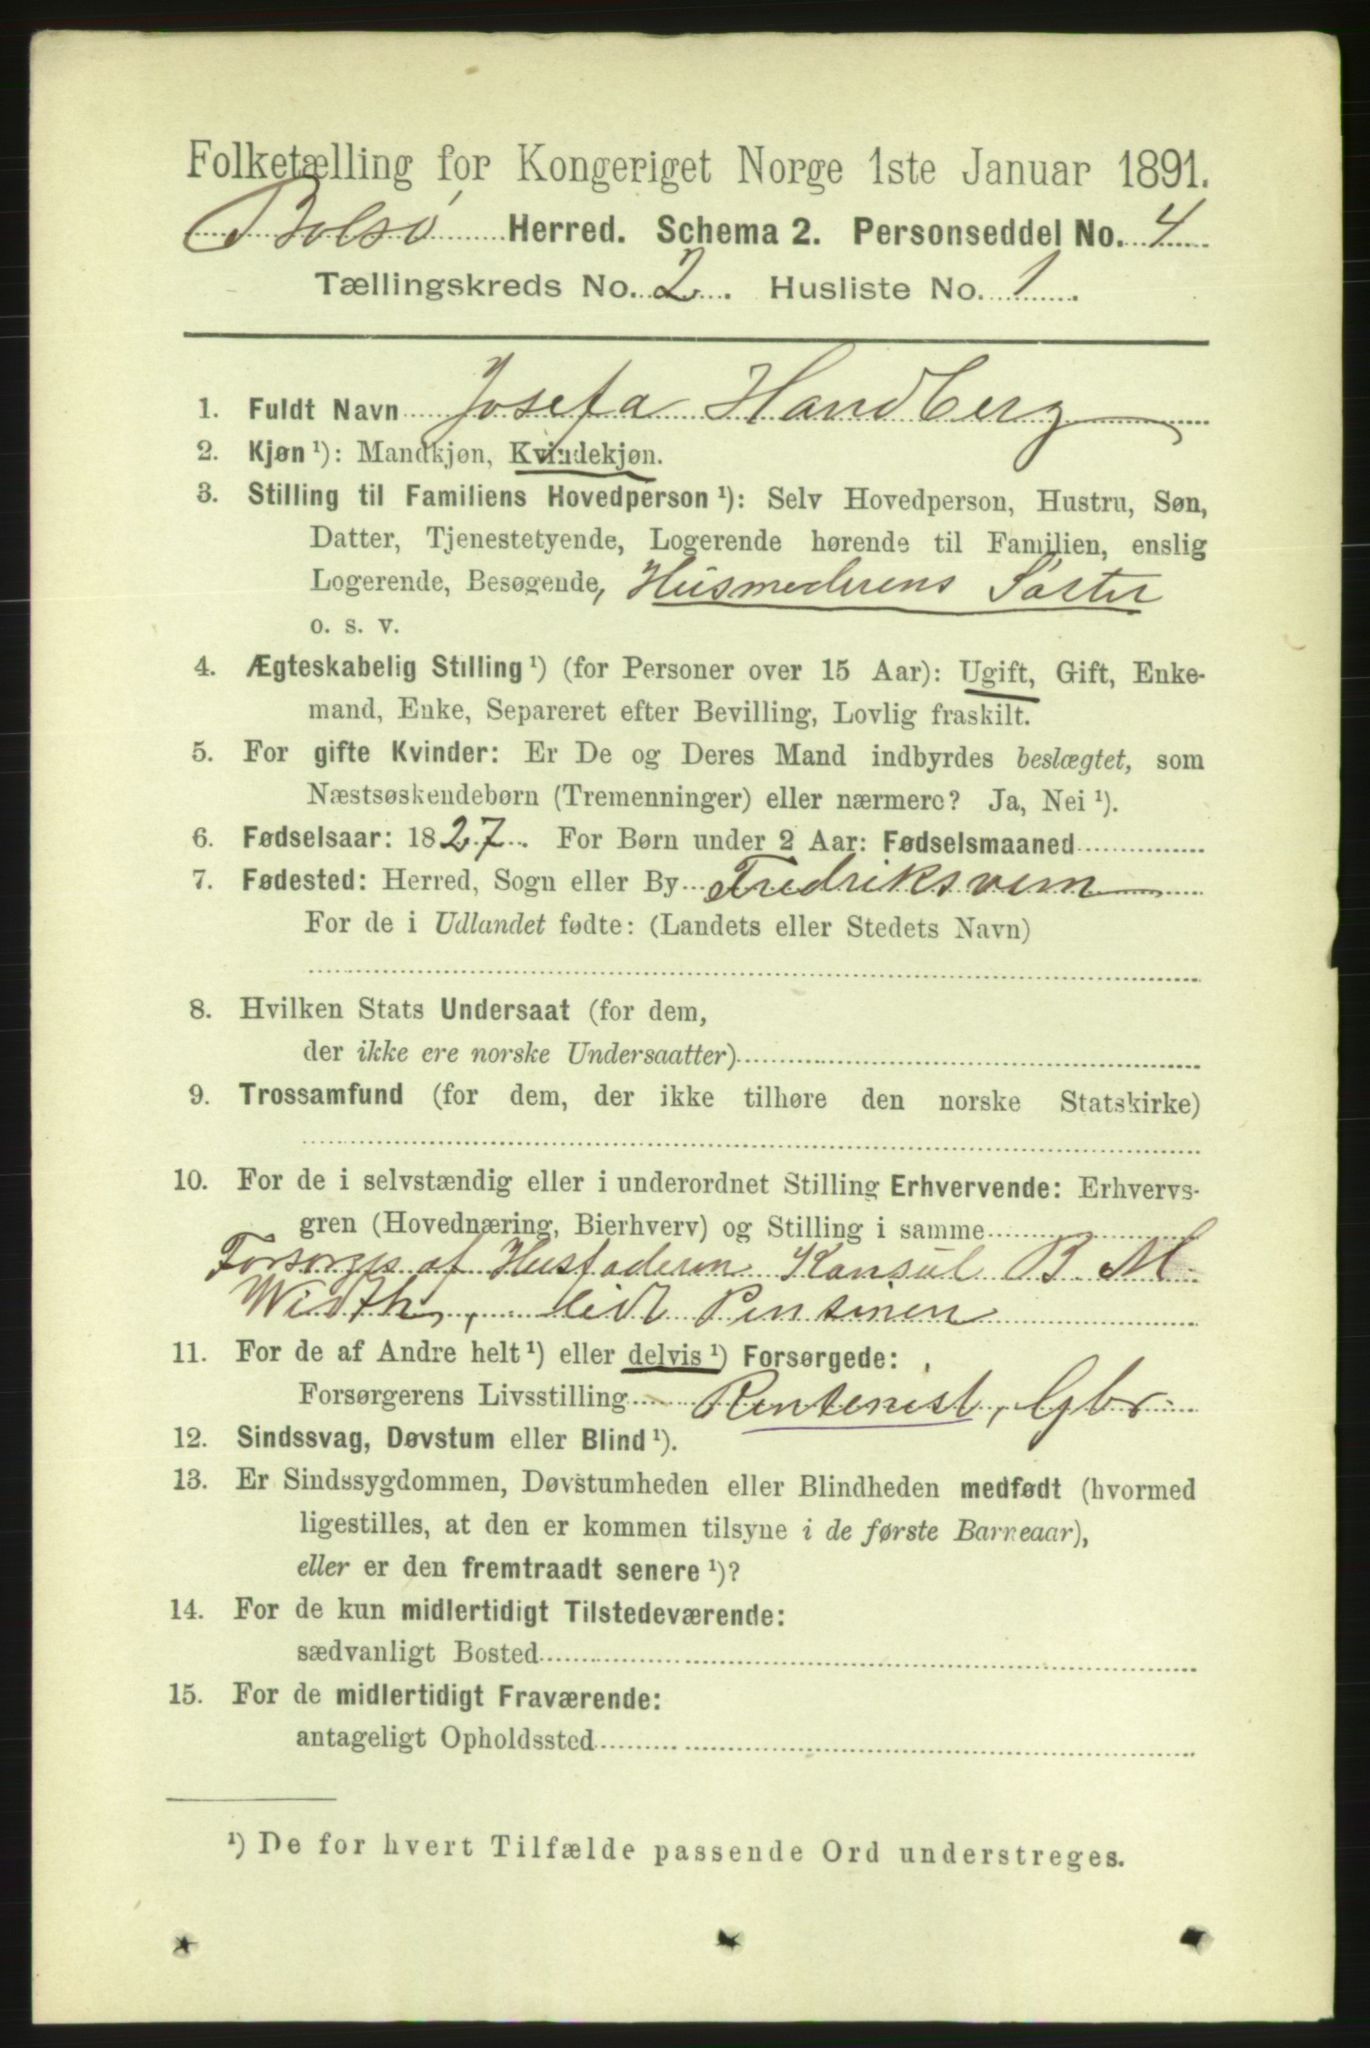 Folketælling for Kongeriget Norge 1ste Januar 1891.
Bolsø Herred. Schema 2. Personseddel No. 4
Tællingskreds No. 2. Husliste No. 1.
1. Fuldt Navn Josefa Handberg
2. Kjøn ¹): Mandkjøn, Kvindekjøn.
3. Stilling til Familiens Hovedperson ¹): Selv Hovedperson, Hustru, Søn,
Datter, Tjenestetyende, Logerende hørende til Familien, enslig
Logerende, Besøgende, Husmoderens Søster
o. s. v.
4. Ægteskabelig Stilling ¹) (for Personer over 15 Aar): Ugift, Gift, Enke-
mand, Enke, Separeret efter Bevilling, Lovlig fraskilt.
5. For gifte Kvinder: Er De og Deres Mand indbyrdes beslægtet, som
Næstsøskendebørn (Tremenninger) eller nærmere? Ja, Nei ¹).
6. Fødselsaar: 1827. For Børn under 2 Aar: Fødselsmaaned
7. Fødested: Herred, Sogn eller By Fredriksværn
For de i Udlandet fødte: (Landets eller Stedets Navn)
8. Hvilken Stats Undersaat (for dem,
der ikke ere norske Undersaatter)
9. Trossamfund (for dem, der ikke tilhøre den norske Statskirke)
10. For de i selvstændig eller i underordnet Stilling Erhvervende: Erhvervs-
gren (Hovednæring, Bierhverv) og Stilling i samme
Forsørges af Husfaderen Konsul B. M.
With, lidt Pension
11. For de af Andre helt ¹) eller delvis ¹) Forsørgede:
Forsørgerens Livsstilling Rentenist, Gbr.
12. Sindssvag, Døvstum eller Blind ¹).
13. Er Sindssygdommen, Døvstumheden eller Blindheden medfødt (hvormed
ligestilles, at den er kommen tilsyne i de første Barneaar),
eller er den fremtraadt senere ¹)?
14. For de kun midlertidigt Tilstedeværende:
sædvanligt Bosted
15. For de midlertidigt Fraværende:
antageligt Opholdssted
¹) De for hvert Tilfælde passende Ord understreges.